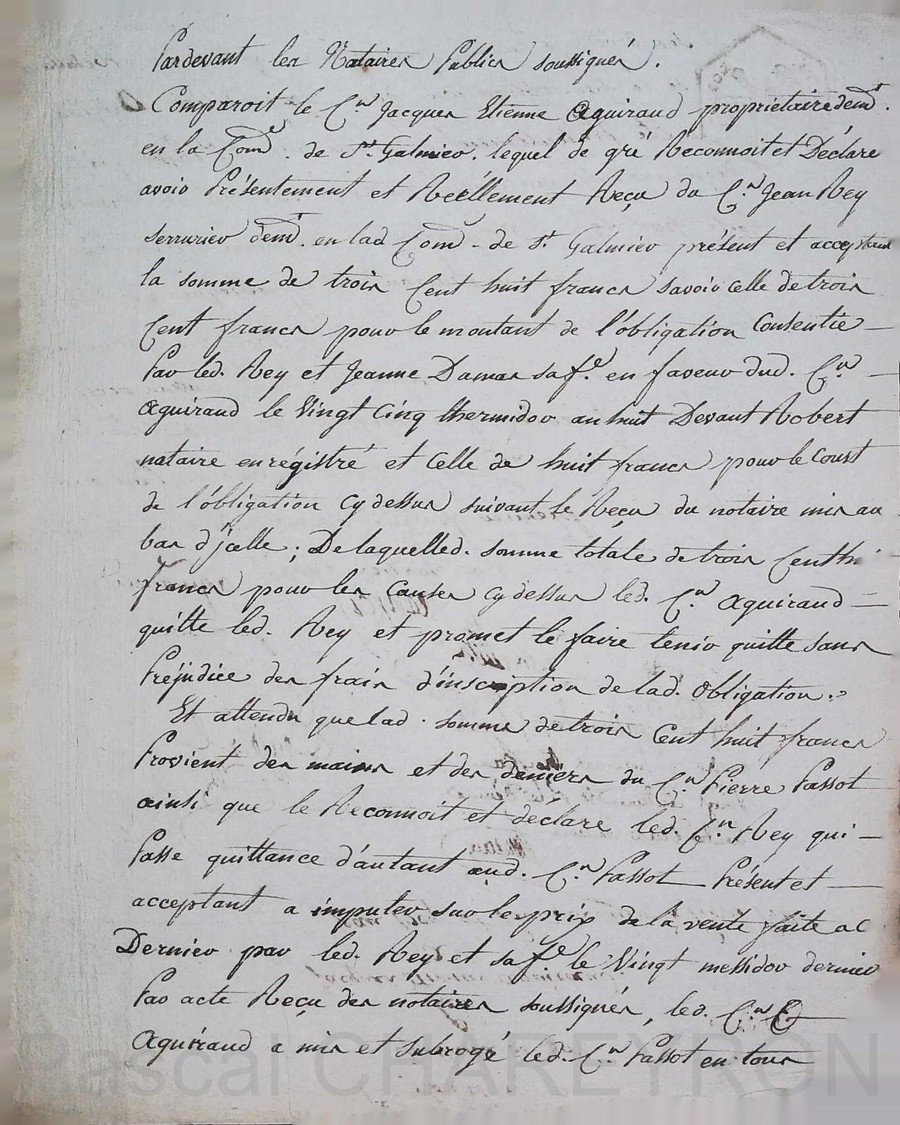 Pardevant les Notaires Publics soussignés.
Comparoit le C.en Jacques Etienne Aguiraud propriétaire demt.
en la Come. de St. Galmier. lequel de gré Reconnoit et Déclare
avoir Présentement et Reéllement Reçu du C.en Jean Rey
serrurier demt. en lad Come. de St. Galmier présent et acceptant
la somme de trois Cent huit francs savoir celle de trois
Cent francs pour le montant de l'obligation Consentie
Par led. Rey et Jeanne Damas sa fe. en faveur dud. C.en
Aguiraud le Vingt Cinq thermidor an huit Devant Robert
notaire enrégistré et Celle de huit francs pour le Coust
de l'obligation cy dessus suivant le Reçu du notaire mis au
bas d'jcelle ; De laquelle d. somme totale de trois Cent
francs pour les Causes cy dessus led. C.en Aguiraud
quitte led. Rey et promet le faire tenir quitte sans
Préjudice des frais d'inscription de lad. Obligation.
Et attendu que lad. somme de trois Cent huit francs
Provient des mains et des deniers du C.en Pierre Passot
ainsi que le Reconnoit et déclare led. C.en Rey qui
Passe quittance d'autant aud. C.en Passot Présent et
acceptant a imputer sur le prix de la vente faite a c
Dernier par led. Rey et sa fe. le Vingt messidor dernier
Par acte Reçu des notaires soussignés, led. C.en
Aguiraud a mis et subrogé led. C.en Passot en tous
Pascal CHAREYRON